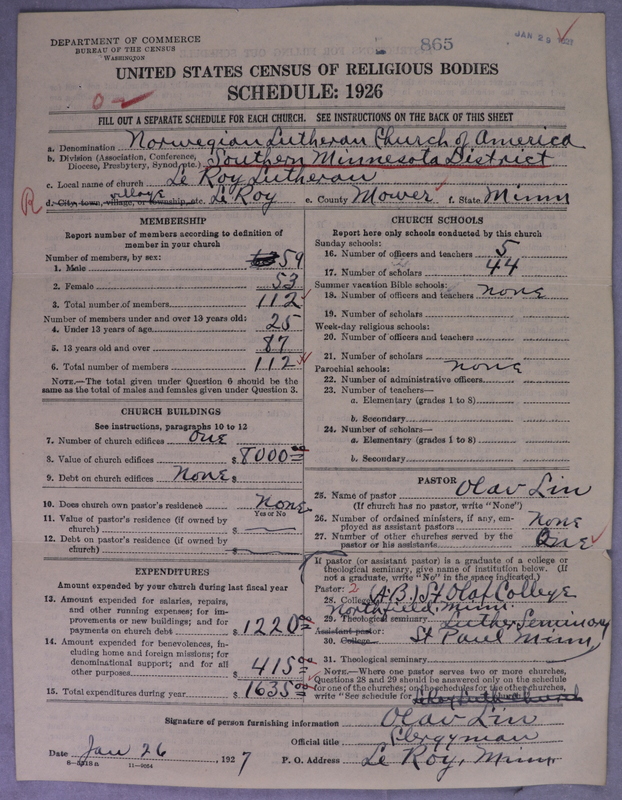 DEPARTMENT OF COMMERCE
BUREAU OF THE CENSUS
WASHINGTON
865
JAN 29 1927
UNITED STATES CENSUS OF RELIGIOUS BODIES
SCHEDULE: 1926
FILL OUT A SEPARATE SCHEDULE FOR EACH CHURCH. SEE INSTRUCTIONS ON THE BACK OF THIS SHEET
a. Denomination Norwegian Lutheran Church of America
b. Division (Association, Conference, Diocese, Presbytery, Synod, etc.) Southern Minnesota District
c. Local name of church Le Roy Lutheran
R d. City, town, village, or township, etc. village Le Roy e. County Mower f. State Minn
MEMBERSHIP
Report number of members according to definition of
member in your church
Number of members, by sex:
1. Male 59
2. Female 53
3. Total number of members 112
Number of members under and over 13 years old:
4. Under 13 years of age 25
5. 13 years old and over 87
6. Total number of members 112
NOTE.—The total given under Question 6 should be the
same as the total of males and females given under Question 3.
CHURCH BUILDINGS
See instructions, paragraphs 10 to 12
7. Number of church edifices One
8. Value of church edifices $ 8000.00
9. Debt on church edifices None $
10. Does church own pastor's residence None
Yes or No
11. Value of pastor's residence (if owned by
church) $
12. Debt on pastor's residence (if owned by
church) $
EXPENDITURES
Amount expended by your church during last fiscal year
13. Amount expended for salaries, repairs,
and other running expenses; for im-
provements or new buildings; and for
payments on church debt $ 1220.00
14. Amount expended for benevolences, in-
cluding home and foreign missions; for
denominational support; and for all
other purposes $ 415.00
15. Total expenditures during year $ 1635.00
CHURCH SCHOOLS
Report here only schools conducted by this church
Sunday schools:
16. Number of officers and teachers 5
17. Number of scholars 44
Summer vacation Bible schools:
18. Number of officers and teachers none
19. Number of scholars
Week-day religious schools:
20. Number of officers and teachers
21. Number of scholars
Parochial schools: none
22. Number of administrative officers
23. Number of teachers—
a. Elementary (grades 1 to 8)
b. Secondary
24. Number of scholars—
a. Elementary (grades 1 to 8)
b. Secondary
PASTOR
25. Name of pastor Olav Lin
(If church has no pastor, write "None")
26. Number of ordained ministers, if any, em-
ployed as assistant pastors None
27. Number of other churches served by the
pastor or his assistants One
If pastor (or assistant pastor) is a graduate of a college or
theological seminary, give name of institution below. (If
not a graduate, write "No" in the space indicated.)
Pastor: 2
28. College (A.B.) St Olaf College
Northfield, Minn.
29. Theological seminary Luther Seminary
Assistant pastor: St Paul Minn
30. College
31. Theological seminary
NOTE.—Where one pastor serves two or more churches,
Questions 28 and 29 should be answered only on the schedule
for one of the churches; on the schedules for the other churches,
write "See schedule for church
Signature of person furnishing information Olav Lin
Official title Clergyman
Date Jan 26, 1927 P. O. Address Le Roy, Minn
11—9064